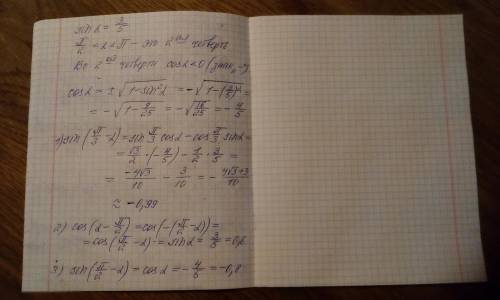 sin α = 3/5
π/2 < α < π - это 2 ой четверть
Во 2 ой четверти cos α < 0 (знак "-")
cos α = ± √(1 - sin² α) = - √(1 - (3/5)²) =
= - √(1 - 9/25) = - √(16/25) = - 4/5
1) sin(π/3 - α) = sin π/3 cos α - cos π/3 sin α =
= √3/2 · (- 4/5) - 1/2 · 3/5 =
= -4√3/10 - 3/10 = - 4√3+3/10
≈ -0,99
2) cos(α - π/2) = cos(-(π/2 - α)) =
= cos(π/2 - α) = sin α = 3/5 = 0,6
3) sin(π/2 - α) = cos α = - 4/5 = -0,8